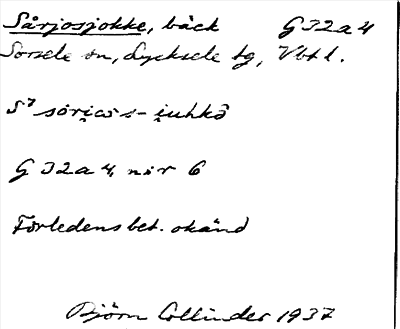 Sårjosjokke, bäck G 32 a 4
Sorsele sn, Lycksele tg, Vbt l.
G 32 a 4, nir 6
Förledens bet. okänd
Björn Collinder 1937